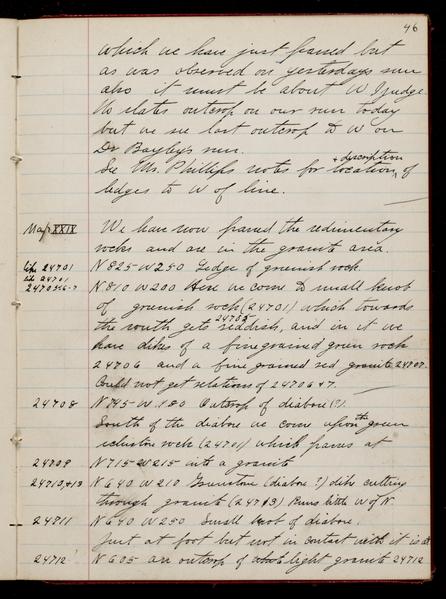 46
which we have just passed but
as was observed on yesterdays run
also it must be about W Judge
No slates outcrop on our run today
but we see last outcrop to W on
Dr Bayley's run.
See Mr. Phillips notes for location + description of
ledges to W of line.
Map XXIX We have now passed the sedimentary
rocks and are in the granite area.
like 24701 N 825 W 250 Ledge of greenish rock.
like 24701
24705-6-7 N 810 W 200 Here we come to small knob
of greenish rock (24701) which towards
the south gets reddish, 24705 and in it we
have dikes of a fine grained green rock
24706 and a fine grained red granite 24707.
Could not get relations of 24706 & 7.
24708 N 745 W 180 Outcrop of diabase (?).
South of the diabase we come upon the green
schistose rock (24701) which passes at
24709 N 715 W 215 into a granite
24710, & 13 N 640 W 210 Greenstone (diabase?) dike cutting
through granite (24713) Runs little W of N.
24711 N 640 W 250 Small knob of diabase.
Just at foot but not in contact with it is at
24712 N 605 an outcrop of light granite 24712